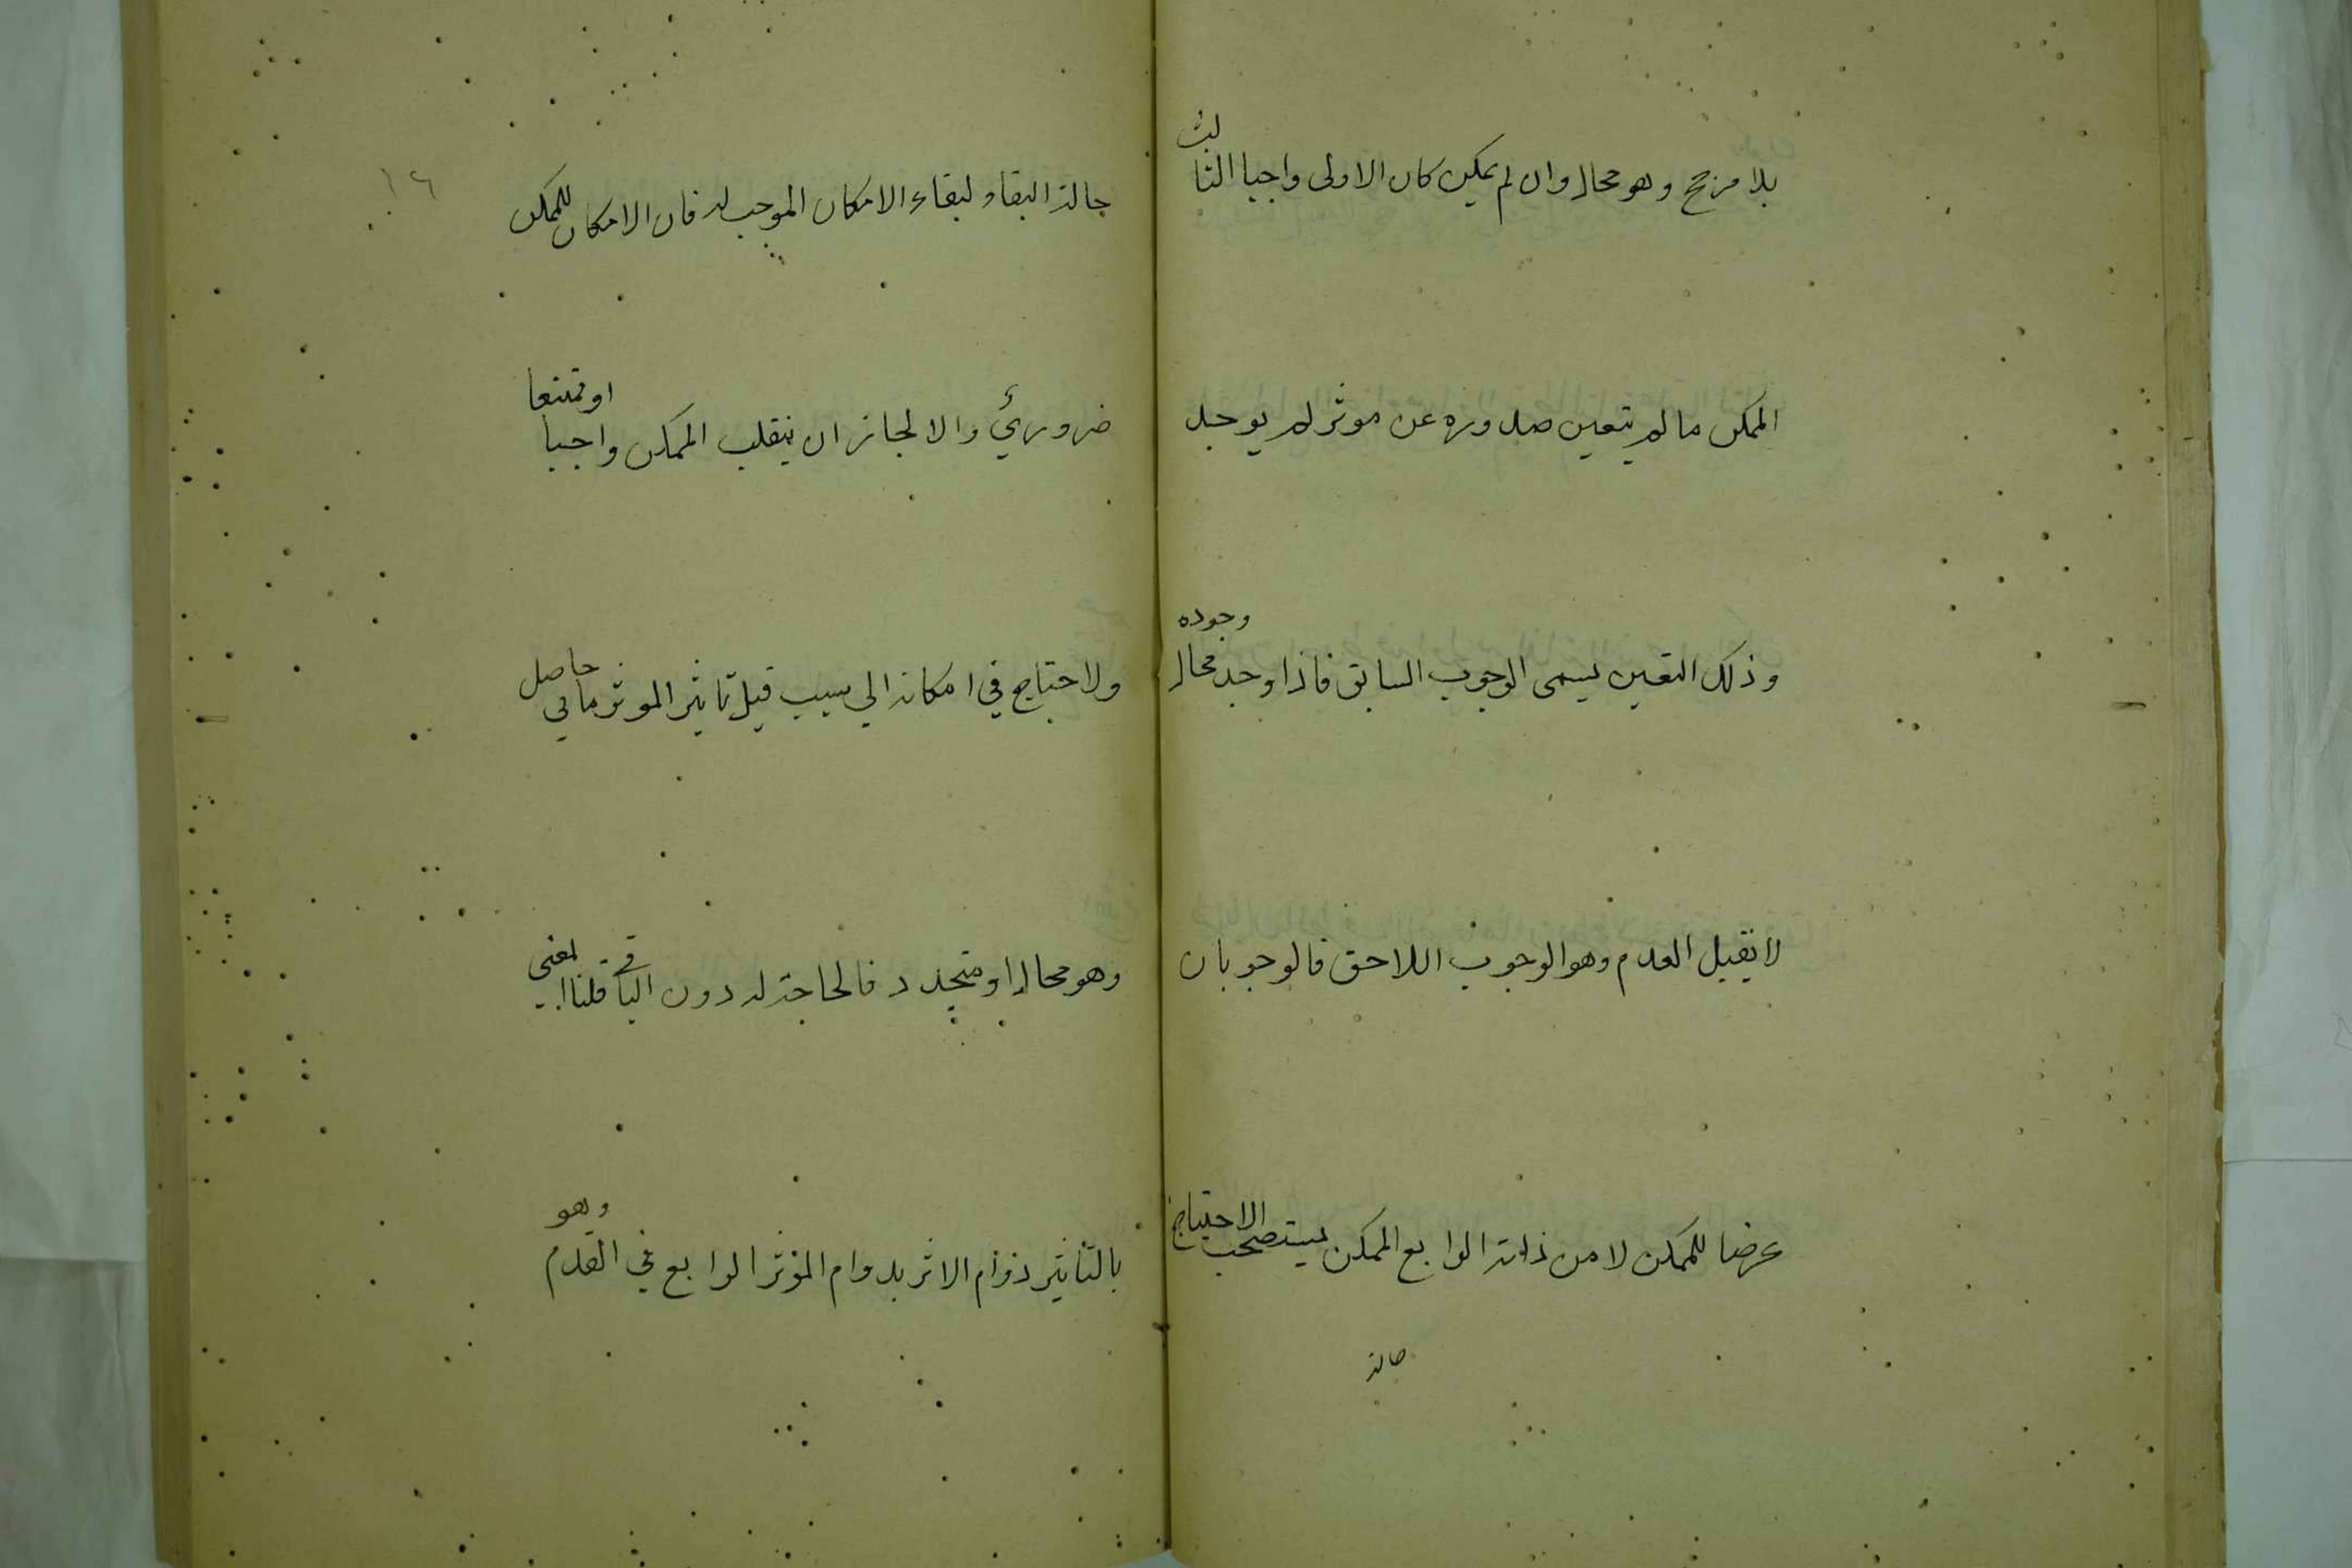 بلا مرجح وهو محال وان لم يمكن كان الاولى واجبا الثالث
الممكن ما لم يتعين صدوره عن موثر لم يوجد
وذلك التعين يسمى الوجوب السابق فاذا وجد محال وجوده
لا يقبل العدم وهو الوجوب اللاحق فالوجوبان
عرضا للممكن لا من ذاته الرابع الممكن يستصحب الاحتياج
حالة
١٦
حالة البقاء لبقاء الامكان الموجب له فان الامكان للممكن
ضروريّ والا لجاز ان ينقلب الممكن واجبا او ممتنعا
ولا حتياج في امكانه الي سبب قيل تاثير الموثر ما في حاصل
وهو محال او متجدد فالحاجة له دون الباقي قلنا المعني
بالتأثير دوام الاثر بدوام المؤثر الرابع في القدم وهو